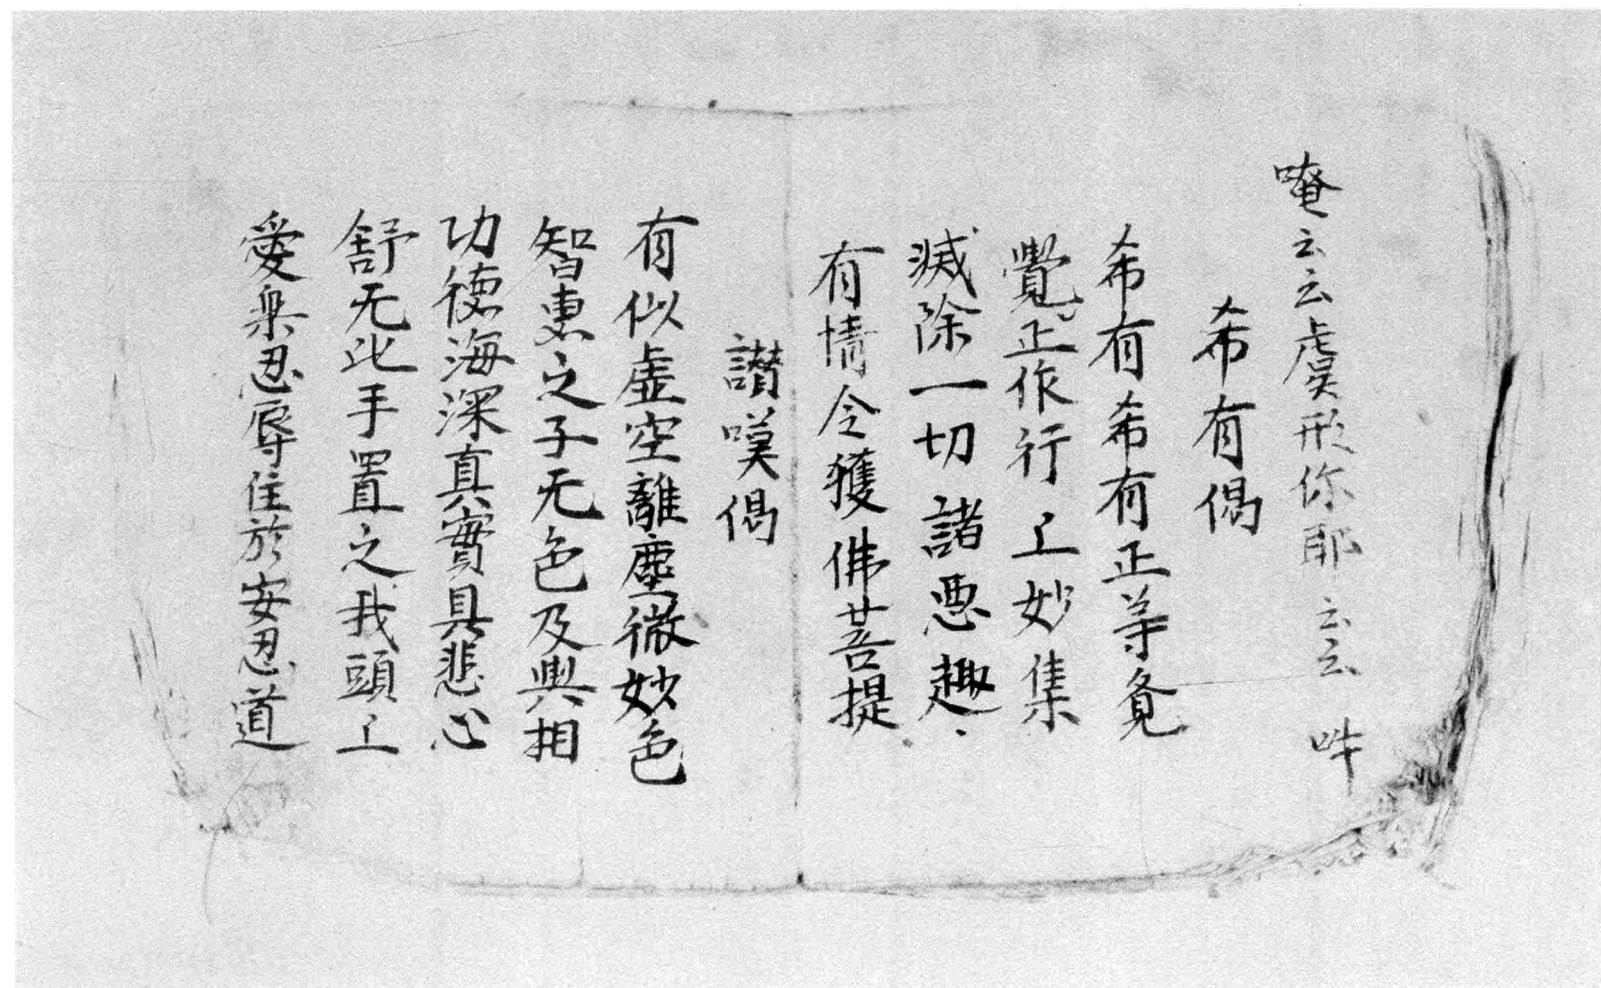 唵云云虞形你耶云云吽
希有偈
希有希有正等覔
覺正作行上妙集
滅除一切諸惡趣
有情令獲佛菩提
讃嘆偈
有似虛空離塵微妙色
智惠之子无色及與相
功徳海深真實具悲心
舒无比手置之我頭上
愛樂忍辱住於安忍道